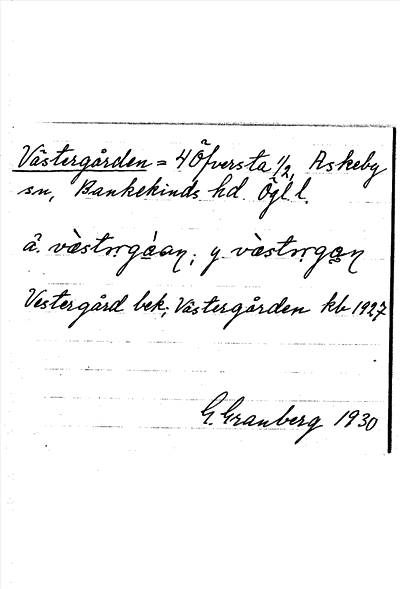 Västergården = 4 Öfversta 1/2, Askeby
sn, Bankekinds hd. Ögl l.
ä. ; y.
Vestergård bek; Västergården kb 1927
G. Granberg 1930